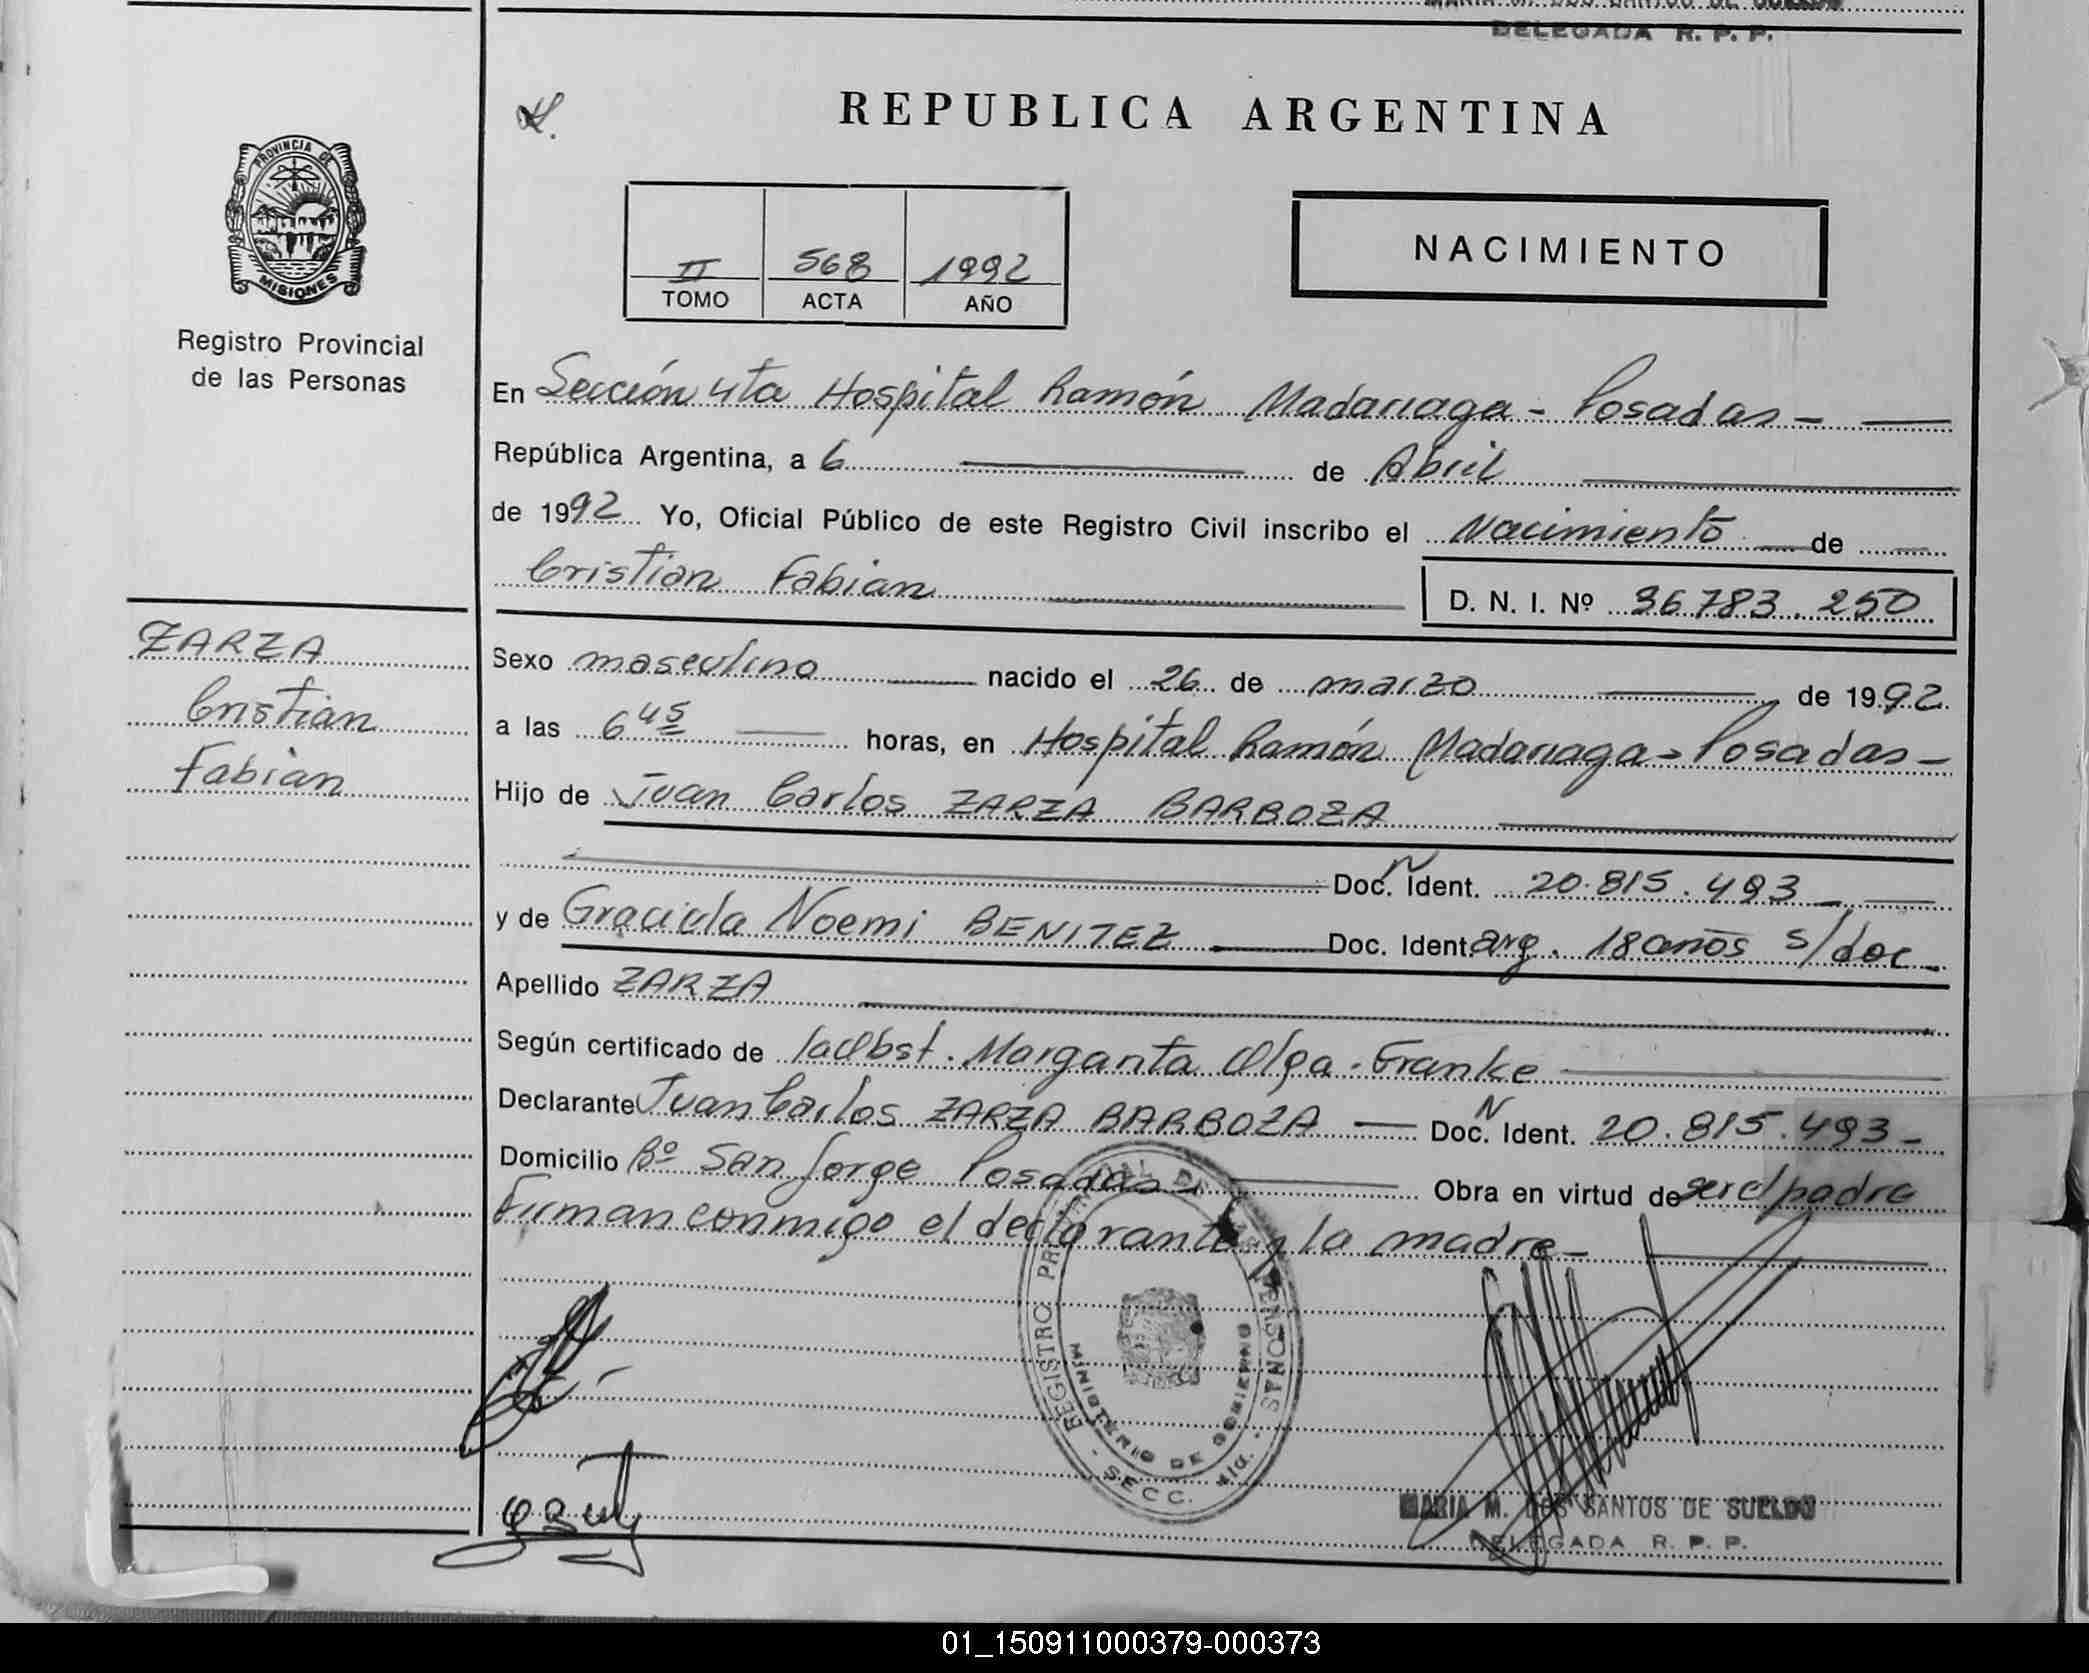 MARIA M. DOS SANTOS DE SUELDO
DELEGADA R. P. P.
REPUBLICA ARGENTINA
PROVINCIA DE
MISIONES
Registro Provincial
de las Personas
II 568 1992
TOMO ACTA AÑO
NACIMIENTO
En Sección 4ta Hospital Ramón Madariaga - Posadas -
República Argentina, a 6 de Abril
de 1992 Yo, Oficial Público de este Registro Civil inscribo el Nacimiento de
Cristian Fabian D. N. I. Nº 36.783.250
ZARZA
Cristian
Fabian
Sexo masculino nacido el 26 de marzo de 1992
a las 6 45 horas, en Hospital Ramón Madariaga - Posadas -
Hijo de Juan Carlos ZARZA BARBOZA
Doc. N Ident. 20.815.493
y de Graciela Noemi BENITEZ Doc. Ident. arg. 18 años s/doc -
Apellido ZARZA
Según certificado de la Obst. Margarita Olga Franke
Declarante Juan Carlos ZARZA BARBOZA Doc. N Ident. 20.815.493 -
Domicilio Bº San Jorge Posadas - Obra en virtud de ser el padre
Firman conmigo el declarante y la madre -
REGISTRO PROVINCIAL DE LAS PERSONAS
MINISTERIO DE GOBIERNO
- SECC. 4ta. -
MARIA M. DOS SANTOS DE SUELDO
DELEGADA R. P. P.
01_150911000379-000373